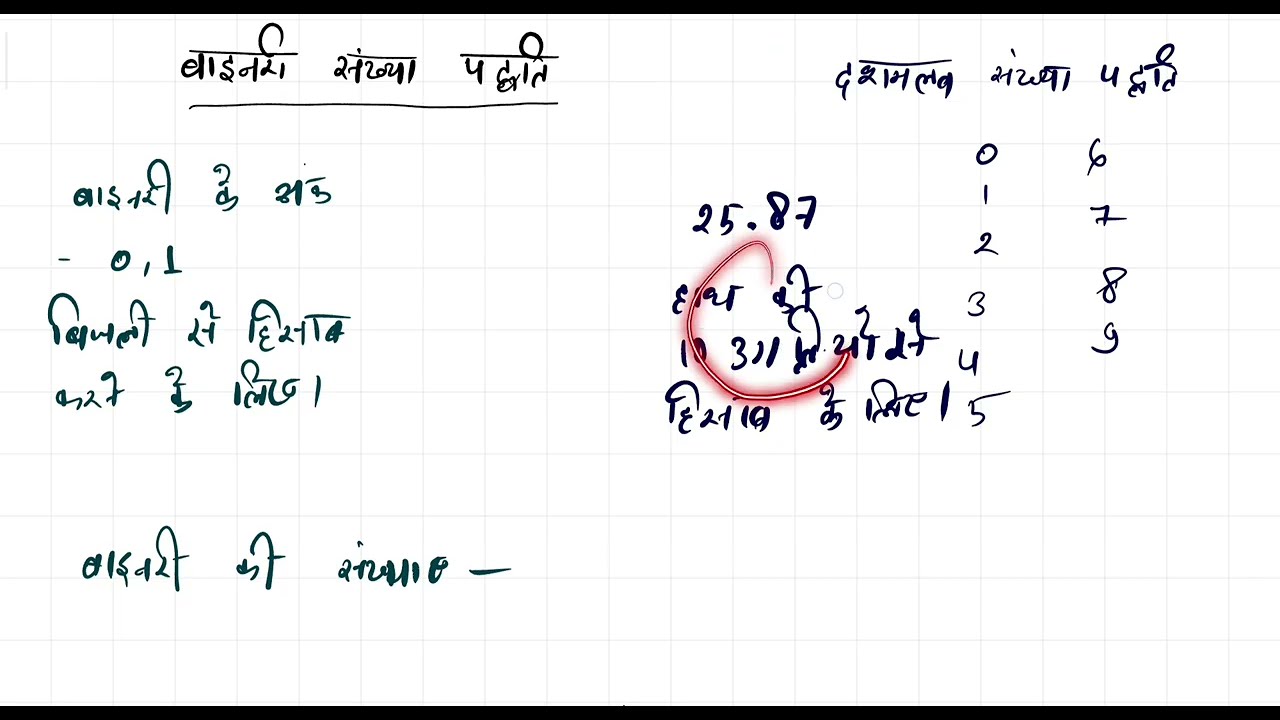 बाइनरी संख्या पद्धति
बाइनरी के अंक
- 0, 1
बिजली से हिसाब
करने के लिए।
बाइनरी की संख्याए —
दशमलव संख्या पद्धति
25.87
हाथ की
10 उंगलियों से
हिसाब के लिए।
0 6
1 7
2
3 8
4 9
5